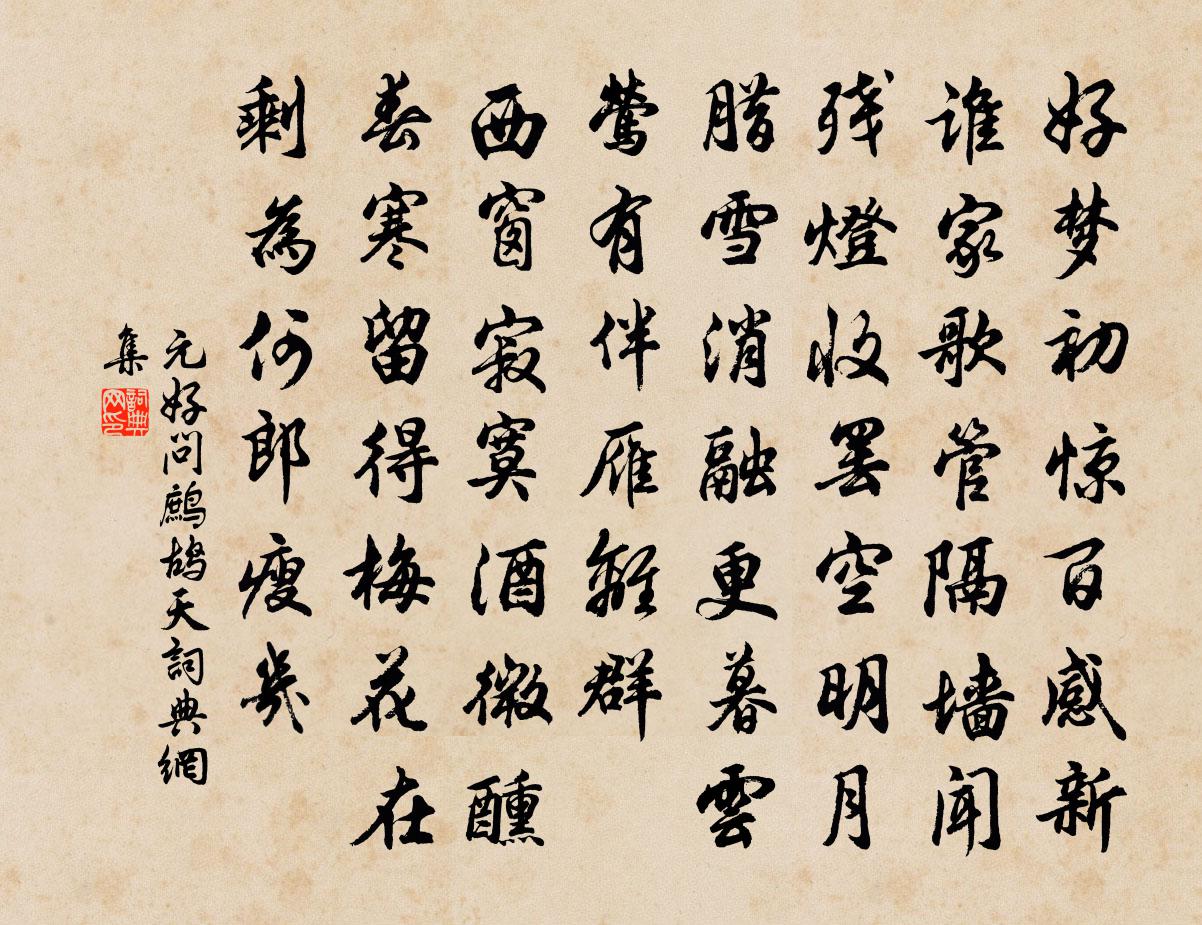 好梦初惊百感新
谁家歌管隔墙闻
残燈收罢空明月
腊雪消融更暮雲
莺有伴雁離群
西窗寂寞酒微醺
春寒留得梅花在
剩為何郎瘦幾
元好问鹧鸪天詞典網
集
詞典网印